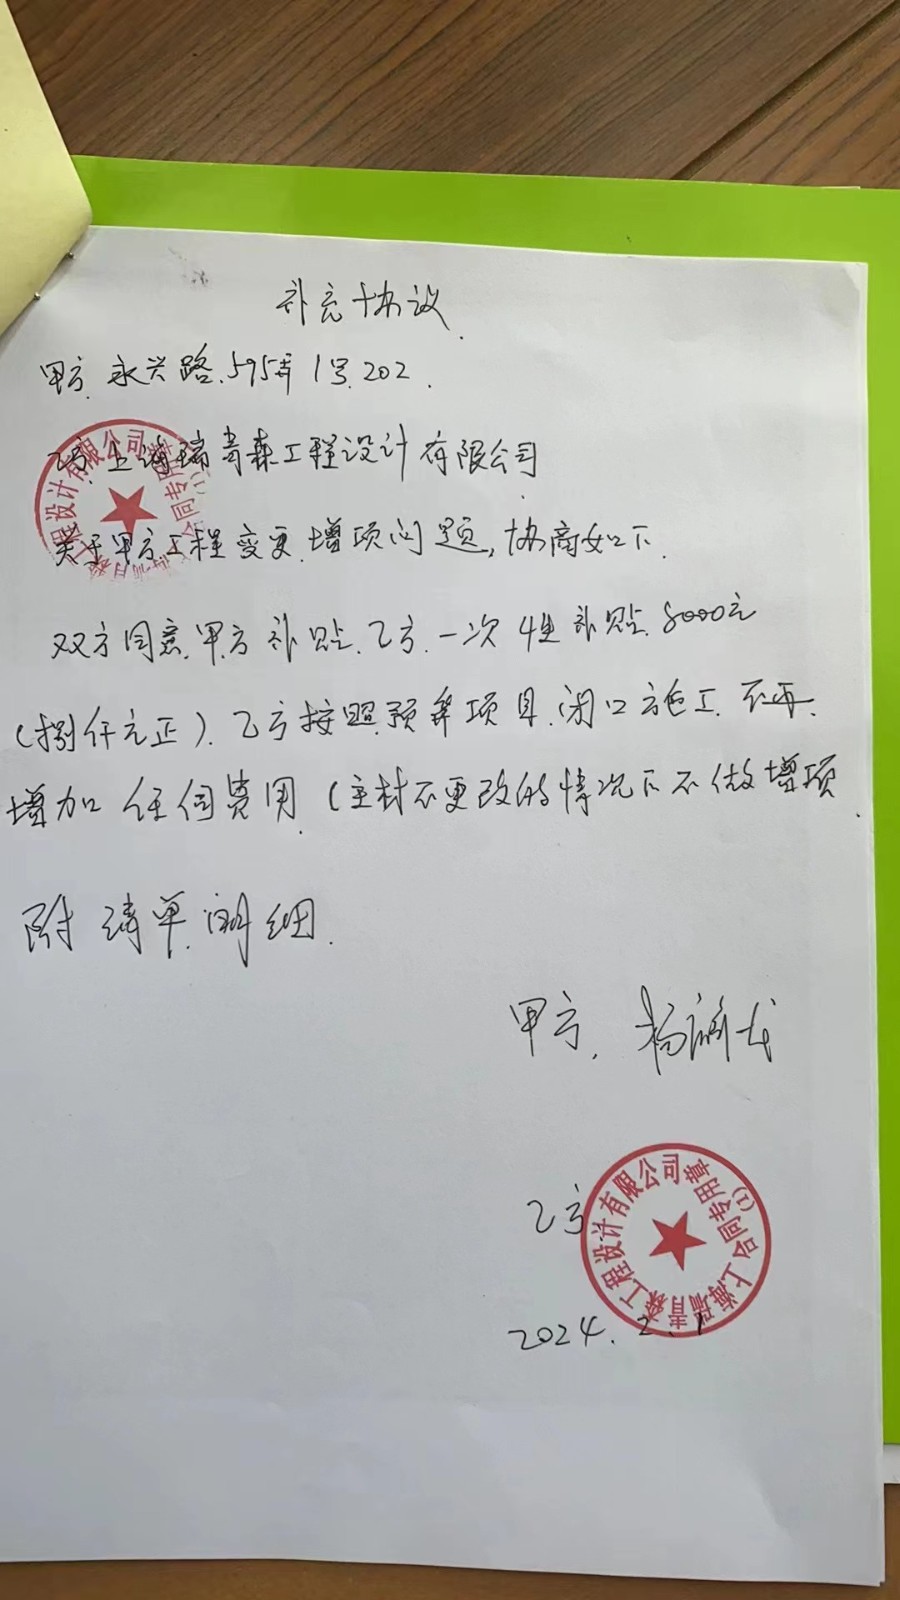 补充协议
甲方.永兴路.595弄1号.202.
乙方.上海瑞青森工程设计有限公司
关于甲方工程变更.增项问题,协商如下.
双方同意.甲方补贴.乙方.一次性补贴.8000元
(捌仟元正).乙方按照.预算项目.闭口施工.不再.
增加任何费用.(主材不更改的情况下不做增项.
附清单.明细.
甲方.杨
乙方
2024.2.1
上海瑞青森工程设计有限公司
合同专用章
(1)
上海瑞青森工程设计有限公司
合同专用章
(1)